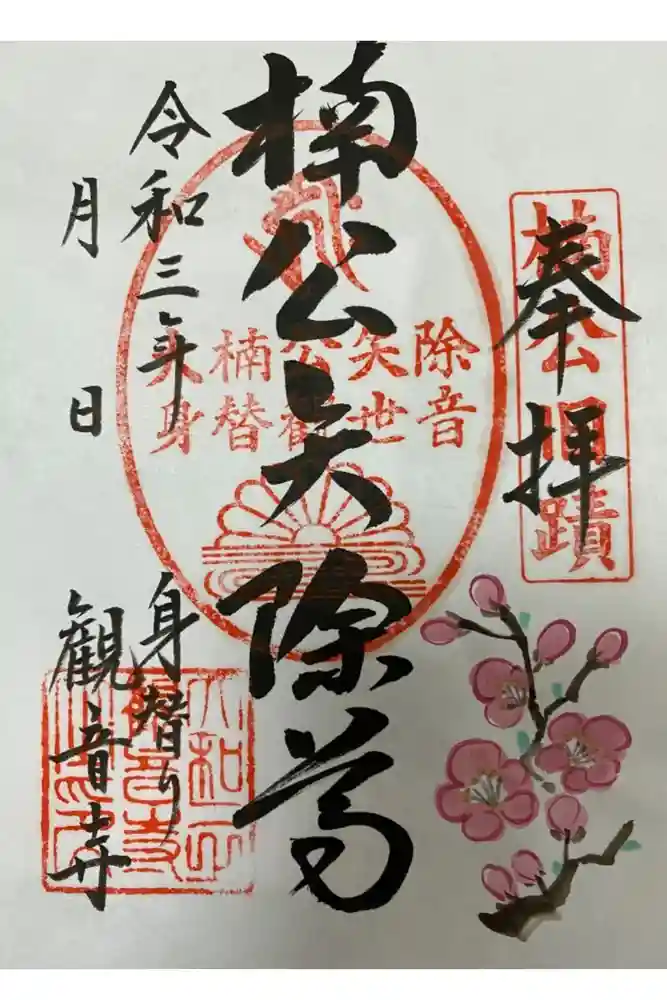 奉拝
楠公旧蹟
楠公矢除尊
大楠公矢除
身替観世音
令和三年
月 日
身替り
観音寺